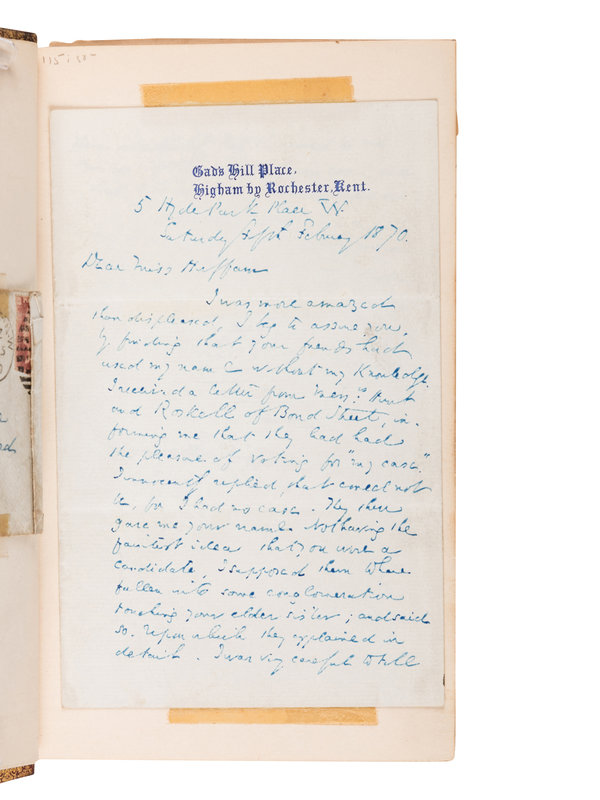 Gad's Hill Place,
Higham by Rochester, Kent.
5 Hyde Park Place W.
Saturday February 1870.
Dear Miss Huffam
I was more amazed
than displeased, I beg to assure you,
by finding that your friends had
used my name without my knowledge.
I received a letter from Mess.rs Hunt
and Roskell of Bond Street, in-
forming me that they had had
the pleasure of voting for "my case."
I innocently replied, that could not
be, for I had no case. They then
gave me your name. Not having the
faintest idea that you were a
candidate, I supposed them to have
fallen into some conglomeration
touching your elder sister; and said
so. Upon which they explained in
detail. I was very careful to tell